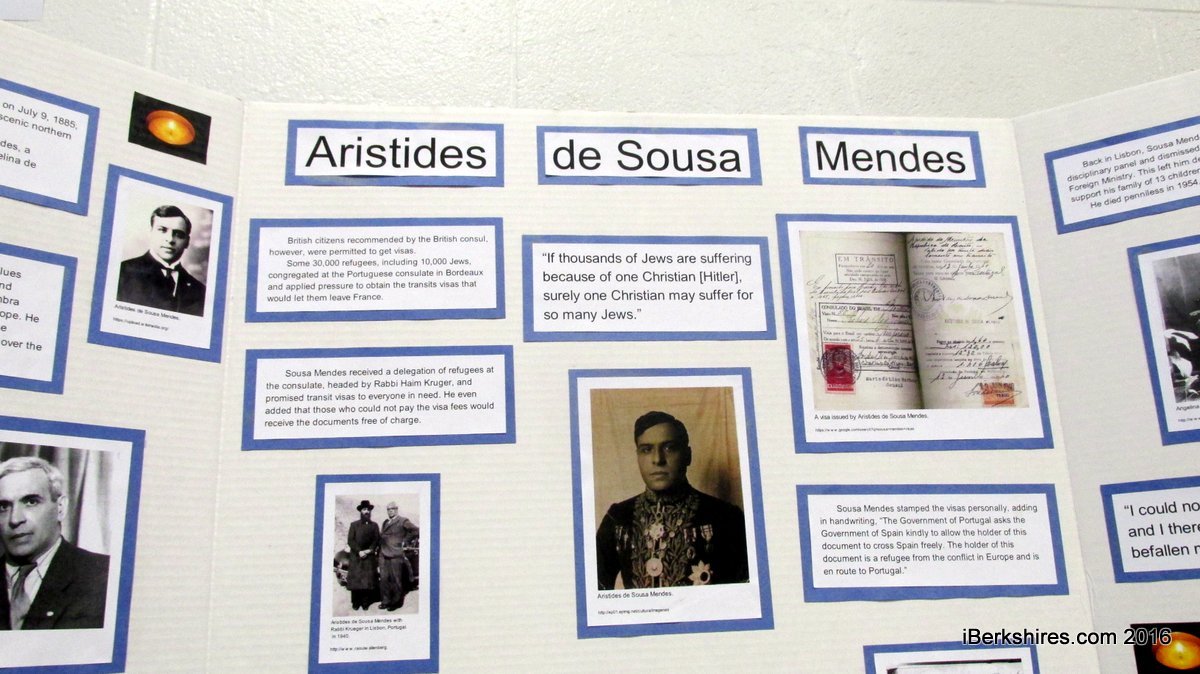 on July 9, 1885,
scenic northern
des, a
elina de
Aristides de Sousa Mendes.
lues
nd
mbra
ope. He
e
over the
Aristides de Sousa Mendes
British citizens recommended by the British consul,
however, were permitted to get visas.
Some 30,000 refugees, including 10,000 Jews,
congregated at the Portuguese consulate in Bordeaux
and applied pressure to obtain the transits visas that
would let them leave France.
Sousa Mendes received a delegation of refugees at
the consulate, headed by Rabbi Haim Kruger, and
promised transit visas to everyone in need. He even
added that those who could not pay the visa fees would
receive the documents free of charge.
Aristides de Sousa Mendes with
Rabbi Krueger in Lisbon, Portugal
in 1940.
“If thousands of Jews are suffering
because of one Christian [Hitler],
surely one Christian may suffer for
so many Jews.”
Aristides de Sousa Mendes.
EM TRÂNSITO
CONSULADO DO BRASIL
A visa issued by Aristides de Sousa Mendes.
Sousa Mendes stamped the visas personally, adding
in handwriting, “The Government of Portugal asks the
Government of Spain kindly to allow the holder of this
document to cross Spain freely. The holder of this
document is a refugee from the conflict in Europe and is
en route to Portugal.”
Back in Lisbon, Sousa Mend
disciplinary panel and dismissed
Foreign Ministry. This left him de
support his family of 13 children
He died penniless in 1954
Angelina
“I could no
and I there
befallen m
iBerkshires.com 2016